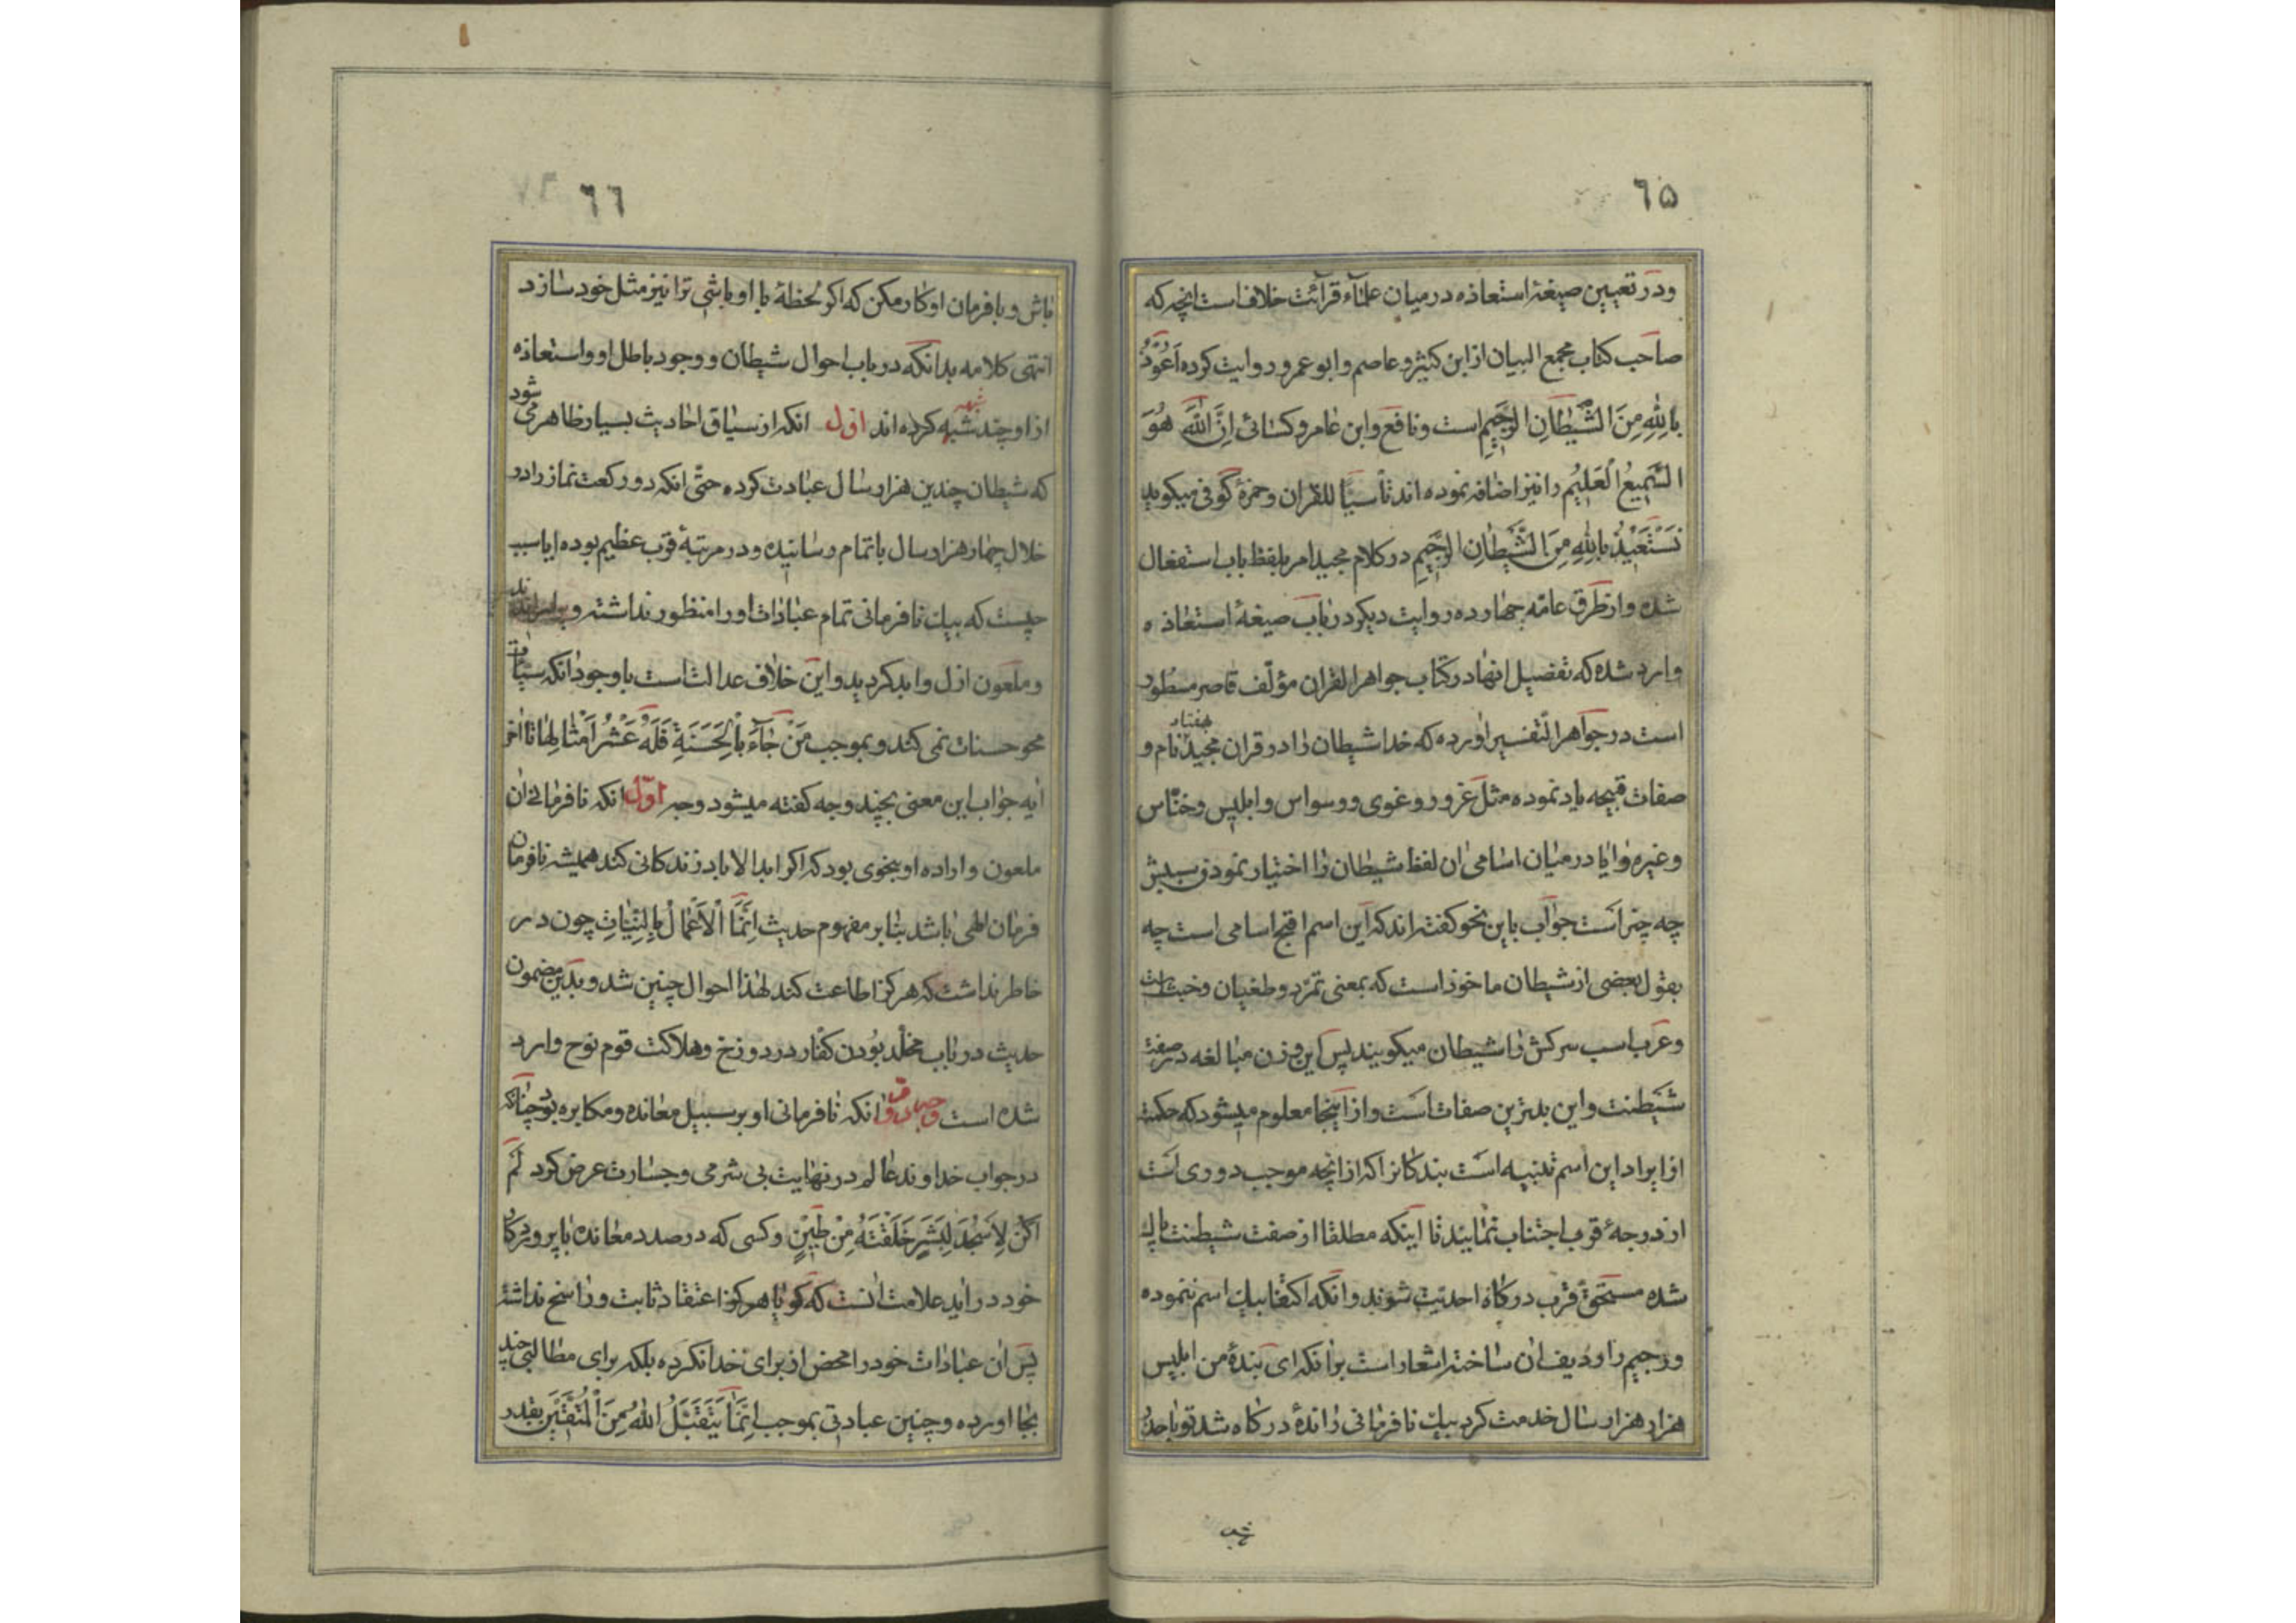 ٦۵
ودر تعیین صیغهٔ استعاذه در میان علمآء قرآئت خلاف است انچه که
صاحب کتاب مجمع البیان از ابن کثیر و عاصم و ابو عمرو روایت کرده اَعُوذُ
بِاللّٰهِ مِنَ الشَّیْطَانِ الرَّجِیمِ است و نافع و ابن عامر و کسائی اِنَّ اللّٰهَ هُوَ
السَّمِیعُ الْعَلِیْمُ را نیز اضافه نموده اند تأسیًا للقران و حمزهٔ کوفی میکوید
نَسْتَعِیْذُ بِاللّٰهِ مِنَ الشَّیْطَانِ الرَّجِیمِ در کلام مجید امر بلفظ باب استفعال
شده و از طرق عامّه چهارده روایت دیکر در باب صیغهٔ استعاذه
وارد شده که تفضیل انها در کتاب جواهر القران مؤلّف قاصر مسطور
است در جواهر التّفسیر اورده که خدا شیطان را در قران مجید هفتاد نام و
صفات قبیحه یاد نموده مثل غرور و غوی و وسواس و ابلیس و خنّاس
و غیره و ایا در میان اسامی ان لفظ شیطان را اختیار نمودن سببش
چه چیز است جواب باین نحو کفته اند که این اسم اقبح اسامی است چه
بقول بعضی از شیطان ماخوذ است که بمعنی تمرّد و طغیان و خباثت
و عرب اسب سرکش را شیطان میکویند پس این وزن مبالغه در صفت
شیطنت و این بدترین صفات است و از اینجا معلوم میشود که حکمت
از ایراد این اسم تنبیه است بندکانرا که از انچه موجب دوری است
از درجهٔ قرب اجتناب نمایند تا اینکه مطلقا از صفت شیطنت پاك
شده مستحقّ قرب درکاه احدیّت شوند و انکه اکتفا بیك اسم ننموده
و رجیم را ردیف ان ساخته اشعار است برانکه ای بندهٔ من ابلیس
هزار هزار سال خدمت کرد بیك نافرمانی راندهٔ درکاه شد تو باحذر
٦٦
باش و با فرمان او کار مکن که اکر لحظهٔ با او باشی ترا نیز مثل خود سازد
انتهی کلامه بدانکه در باب احوال شیطان و وجود باطل او و استعاذه
از او چند شبهه کرده اند اوّل انکه از سیاق احادیث بسیار ظاهر می شود
که شیطان چندین هزار سال عبادت کرده حتّی انکه دو رکعت نماز را در
خلال چهار هزار سال باتمام رسانیده و در مرتبهٔ قرب عظیم بوده ایا سبب
چیست که بیك نافرمانی تمام عبادات او را منظور نداشته و
و ملعون ازل و ابد کردید و این خلاف عدالت است با وجود انکه سیّئات
محو حسنات نمی کند و بموجب مَنْ جَآءَ بِالْحَسَنَةِ فَلَهُ عَشْرُ اَمْثَالِهَا تا اخر
ایه جواب این معنی بچند وجه کفته میشود وجه اوّل انکه نافرمانی ان
ملعون و اراده او بنحوی بود که اکر ابد الاباد زندکانی کند همیشه نافرمان
فرمان الهی باشد بنا بر مفهوم حدیث اِنَّمَا الْاَعْمَالُ بِالنِّیَّاتِ چون در
خاطر نداشت که هرکز اطاعت کند لهذا احوال چنین شد و بدین مضمون
حدیث در باب مخلّد بودن کفّار در دوزخ و هلاکت قوم نوح وارد
شده است وجه دوّم انکه نافرمانی او بر سبیل معانده و مکابره بود چنانکه
در جواب خداوند عالم در نهایت بی شرمی و جسارت عرض کرد لَمْ
اَکُنْ لِاَسْجُدَ لِبَشَرٍ خَلَقْتَهُ مِنْ طِیْنٍ و کسی که در صدد معانده با پروردکار
خود دراید علامت انست که کویا هرکز اعتقاد ثابت و راسخ نداشته
پس ان عبادات خود را محض از برای خدا نکرده بلکه برای مطالبی چند
بجا اورده و چنین عبادتی بموجب اِنَّمَا یَتَقَبَّلُ اللّٰهُ مِنَ الْمُتَّقِیْنَ بقدر